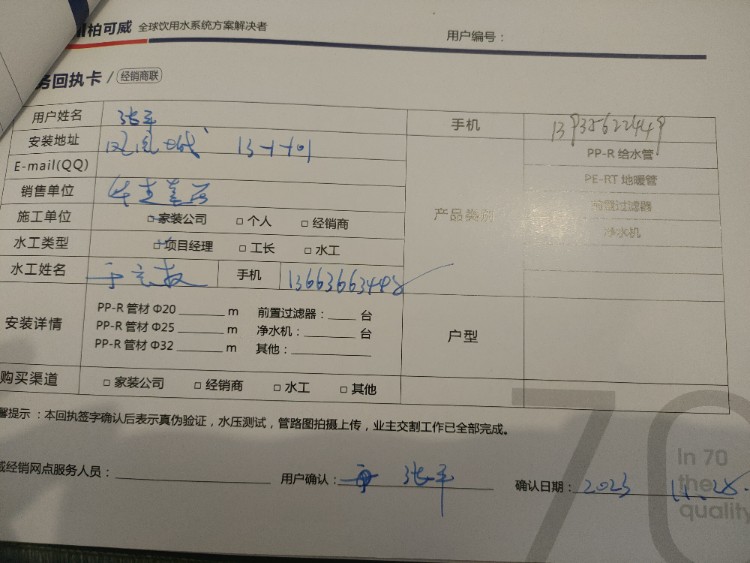 柏可威 全球饮用水系统方案解决者
用户编号：
务回执卡 / 经销商联
用户姓名 张平 手机
安装地址 凤凰城 13-1-101 PP-R 给水管
E-mail(QQ) PE-RT 地暖管
销售单位 产品类别 前置过滤器
施工单位 □ 家装公司 □ 个人 □ 经销商 净水机
水工类型 □ 项目经理 □ 工长 □ 水工
水工姓名 手机
安装详情 户型
PP-R 管材 Φ20 ______ m 前置过滤器：____ 台
PP-R 管材 Φ25 ______ m 净水机：____ 台
PP-R 管材 Φ32 ______ m 其他：______
购买渠道 □ 家装公司 □ 经销商 □ 水工 □ 其他
提示：本回执签字确认后表示真伪验证，水压测试，管路图拍摄上传，业主交割工作已全部完成。
威经销网点服务人员： 用户确认： 张平 确认日期：2023 11.28.
70
In 70
the
quality